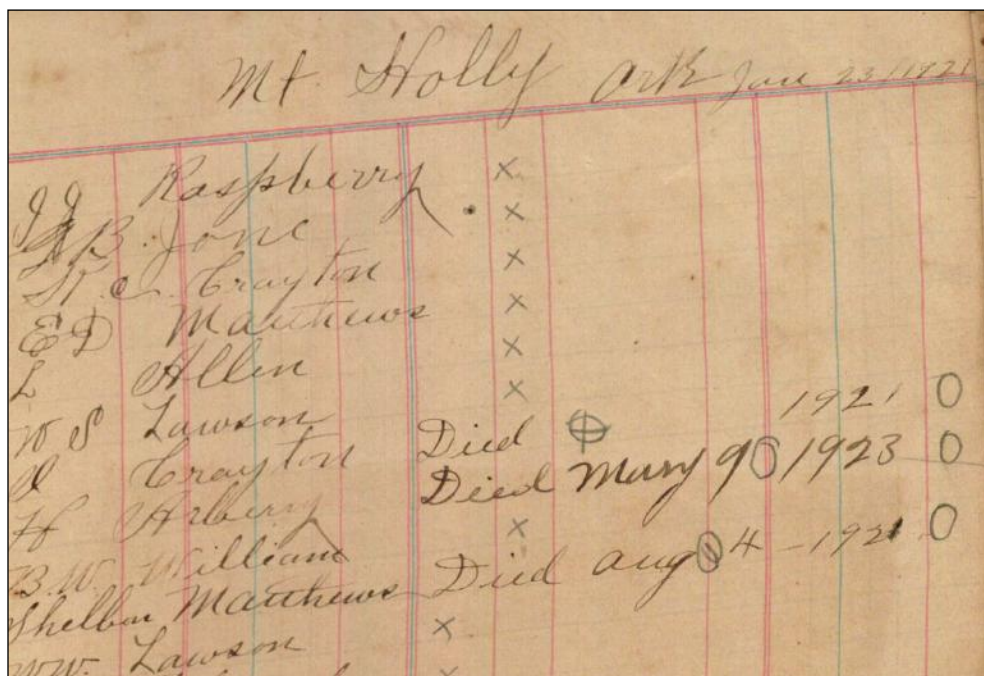 Mt Holly Ark Jan 23 1921
J J Raspberry x
B. Jone x
C. Crayton x
E D Matthews x
L Allen x
W S Lawson x
Crayton Died 1921 0
H Arbery Died Mary 9 0 1923 0
B.W. William x
Shelbon Matthews Died aug 0 4 - 1921 0
W.W. Lawson x